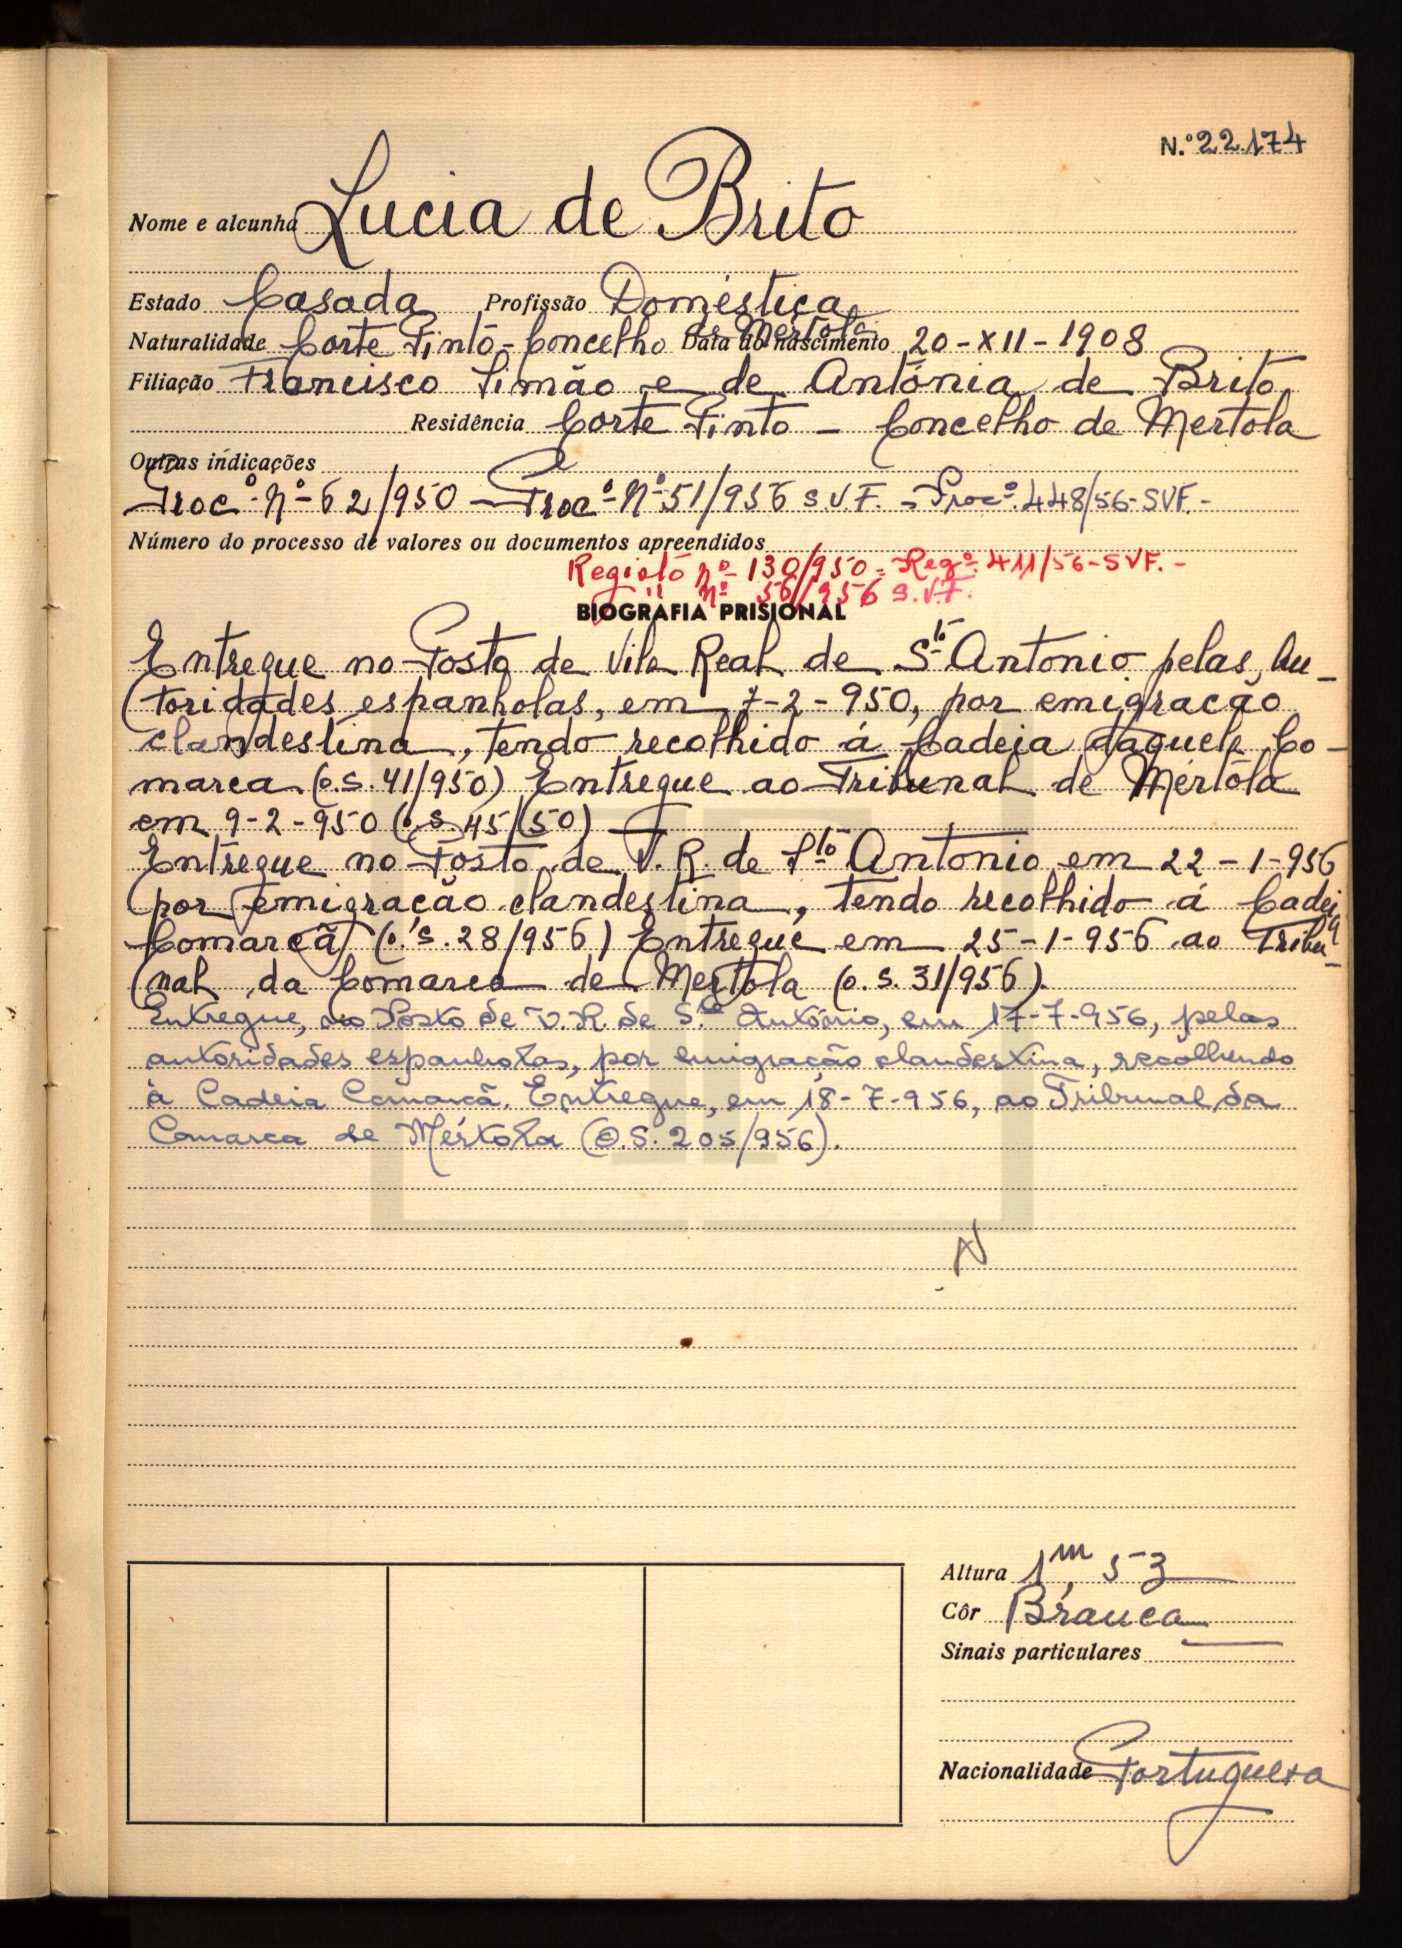 N.º 22.174
Nome e alcunha Lucia de Brito
Estado Casada Profissão Doméstica
Naturalidade Corte Pinto - Concelho de Mértola Data do nascimento 20-XII-1908
Filiação Francisco Simão e de Antónia de Brito
Residência Corte Pinto - Concelho de Mertola
Outras indicações
Procº. Nº 62/950 - Procº Nº 51/956 S.V.F. - Procº. 448/56-SVF.-
Número do processo de valores ou documentos apreendidos
Registo nº 130/950 - Regº. 411/56-SVF.-
" nº 56/956 S.V.F.
BIOGRAFIA PRISIONAL
Entregue no Posto de Vila Real de Stº Antonio pelas Au-
toridades espanholas, em 7-2-950, por emigração
clandestina, tendo recolhido á Cadeia daquela Co-
marca (o.s. 41/950) Entregue ao Tribunal de Mértola
em 9-2-950 (o.s. 45/50)
Entregue no Posto de V. R. de Stº Antonio em 22-1-956
por emigração clandestina, tendo recolhido á Cadeia
Comarcã (o.s. 28/956) Entregue em 25-1-956 ao Tribu-
nal da Comarca de Mertola (o.s. 31/956).
Entregue, no Posto de V.R. de S.to António, em 17-7-956, pelas
autoridades espanholas, por emigração clandestina, recolhendo
à Cadeia Comarcã. Entregue, em 18-7-956, ao Tribunal da
Comarca de Mértola (O.S. 205/956).
N
Altura 1m,53
Côr Branca
Sinais particulares
Nacionalidade Portuguesa